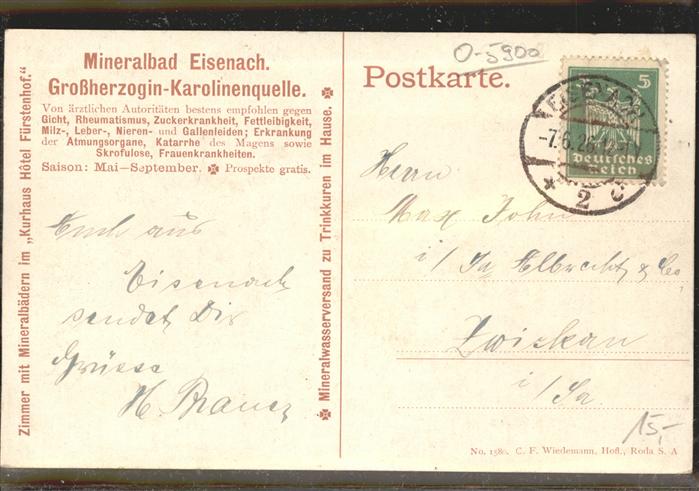 Mineralbad Eisenach.
Großherzogin-Karolinenquelle.
Von ärztlichen Autoritäten bestens empfohlen gegen
Gicht, Rheumatismus, Zuckerkrankheit, Fettleibigkeit,
Milz-, Leber-, Nieren- und Gallenleiden; Erkrankung
der Atmungsorgane, Katarrhe des Magens sowie
Skrofulose, Frauenkrankheiten.
Saison: Mai—September. Prospekte gratis.
Zimmer mit Mineralbädern im „Kurhaus Hôtel Fürstenhof."
Mineralwasserversand zu Trinkkuren im Hause.
Auch aus
Eisenach
sendet Dir
Grüsse
H.
O-5900
Postkarte.
5
Deutsches
Reich
-7.6.26.
* 2 c
Herrn
Max John
i/Fa Albrecht & Co
Zwickau
i/Sa.
15,-
No. 1580. C. F. Wiedemann, Hofl., Roda S. A